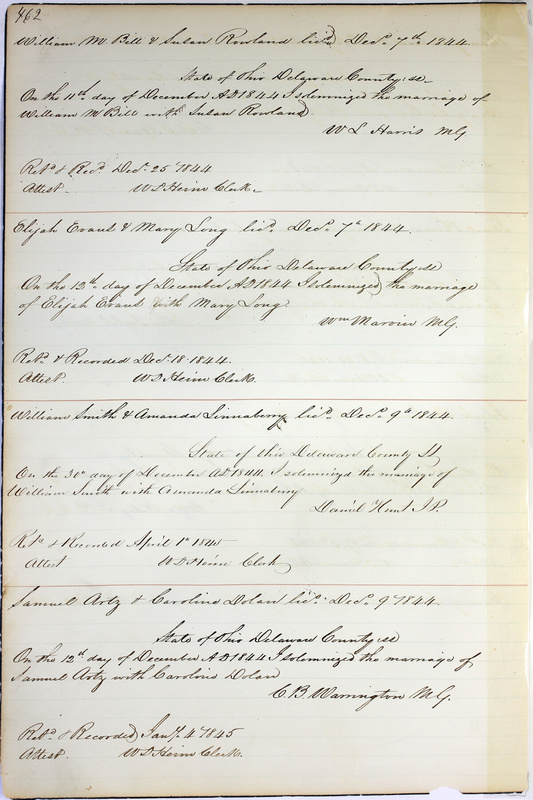 462
William M. Bill & Susan Rowland licd. Decr. 7th 1844.
State of Ohio Delaware County: ss.
On the 11th day of December AD 1844 I solemnized the marriage of
William M Bill with Susan Rowland
W L Harris MG
Retd & Recd. Decr. 25th 1844
Attest. W D Heim Clerk.
Elijah Evans & Mary Long licd. Decr. 7th 1844.
State of Ohio Delaware County ss
On the 12th day of December AD 1844 I solemnized the marriage
of Elijah Evans with Mary Long
Wm Marvin MG.
Retd & Recorded Decr 18. 1844.
Attest. W D Heim Clerk.
William Smith & Amanda Linnaberry licd. Decr. 9th 1844.
State of Ohio Delaware County SS
On the 30th day of December AD. 1844. I solemnizd the marriage of
William Smith with Amanda Linnaberry
Daniel Hunt J.P.
Retd & Recorded April 1st 1845
Attest W D Heim Clerk
Samuel Artz & Caroline Dolan licd. Decr. 9th 1844.
State of Ohio Delaware County: ss
On the 12th day of December AD 1844 I solemnized the marriage of
Samuel Artz with Caroline Dolan
C. B. Warrington M.G.
Retd. & Recorded Jany. 4th 1845
Attest. W D Heim Clerk.